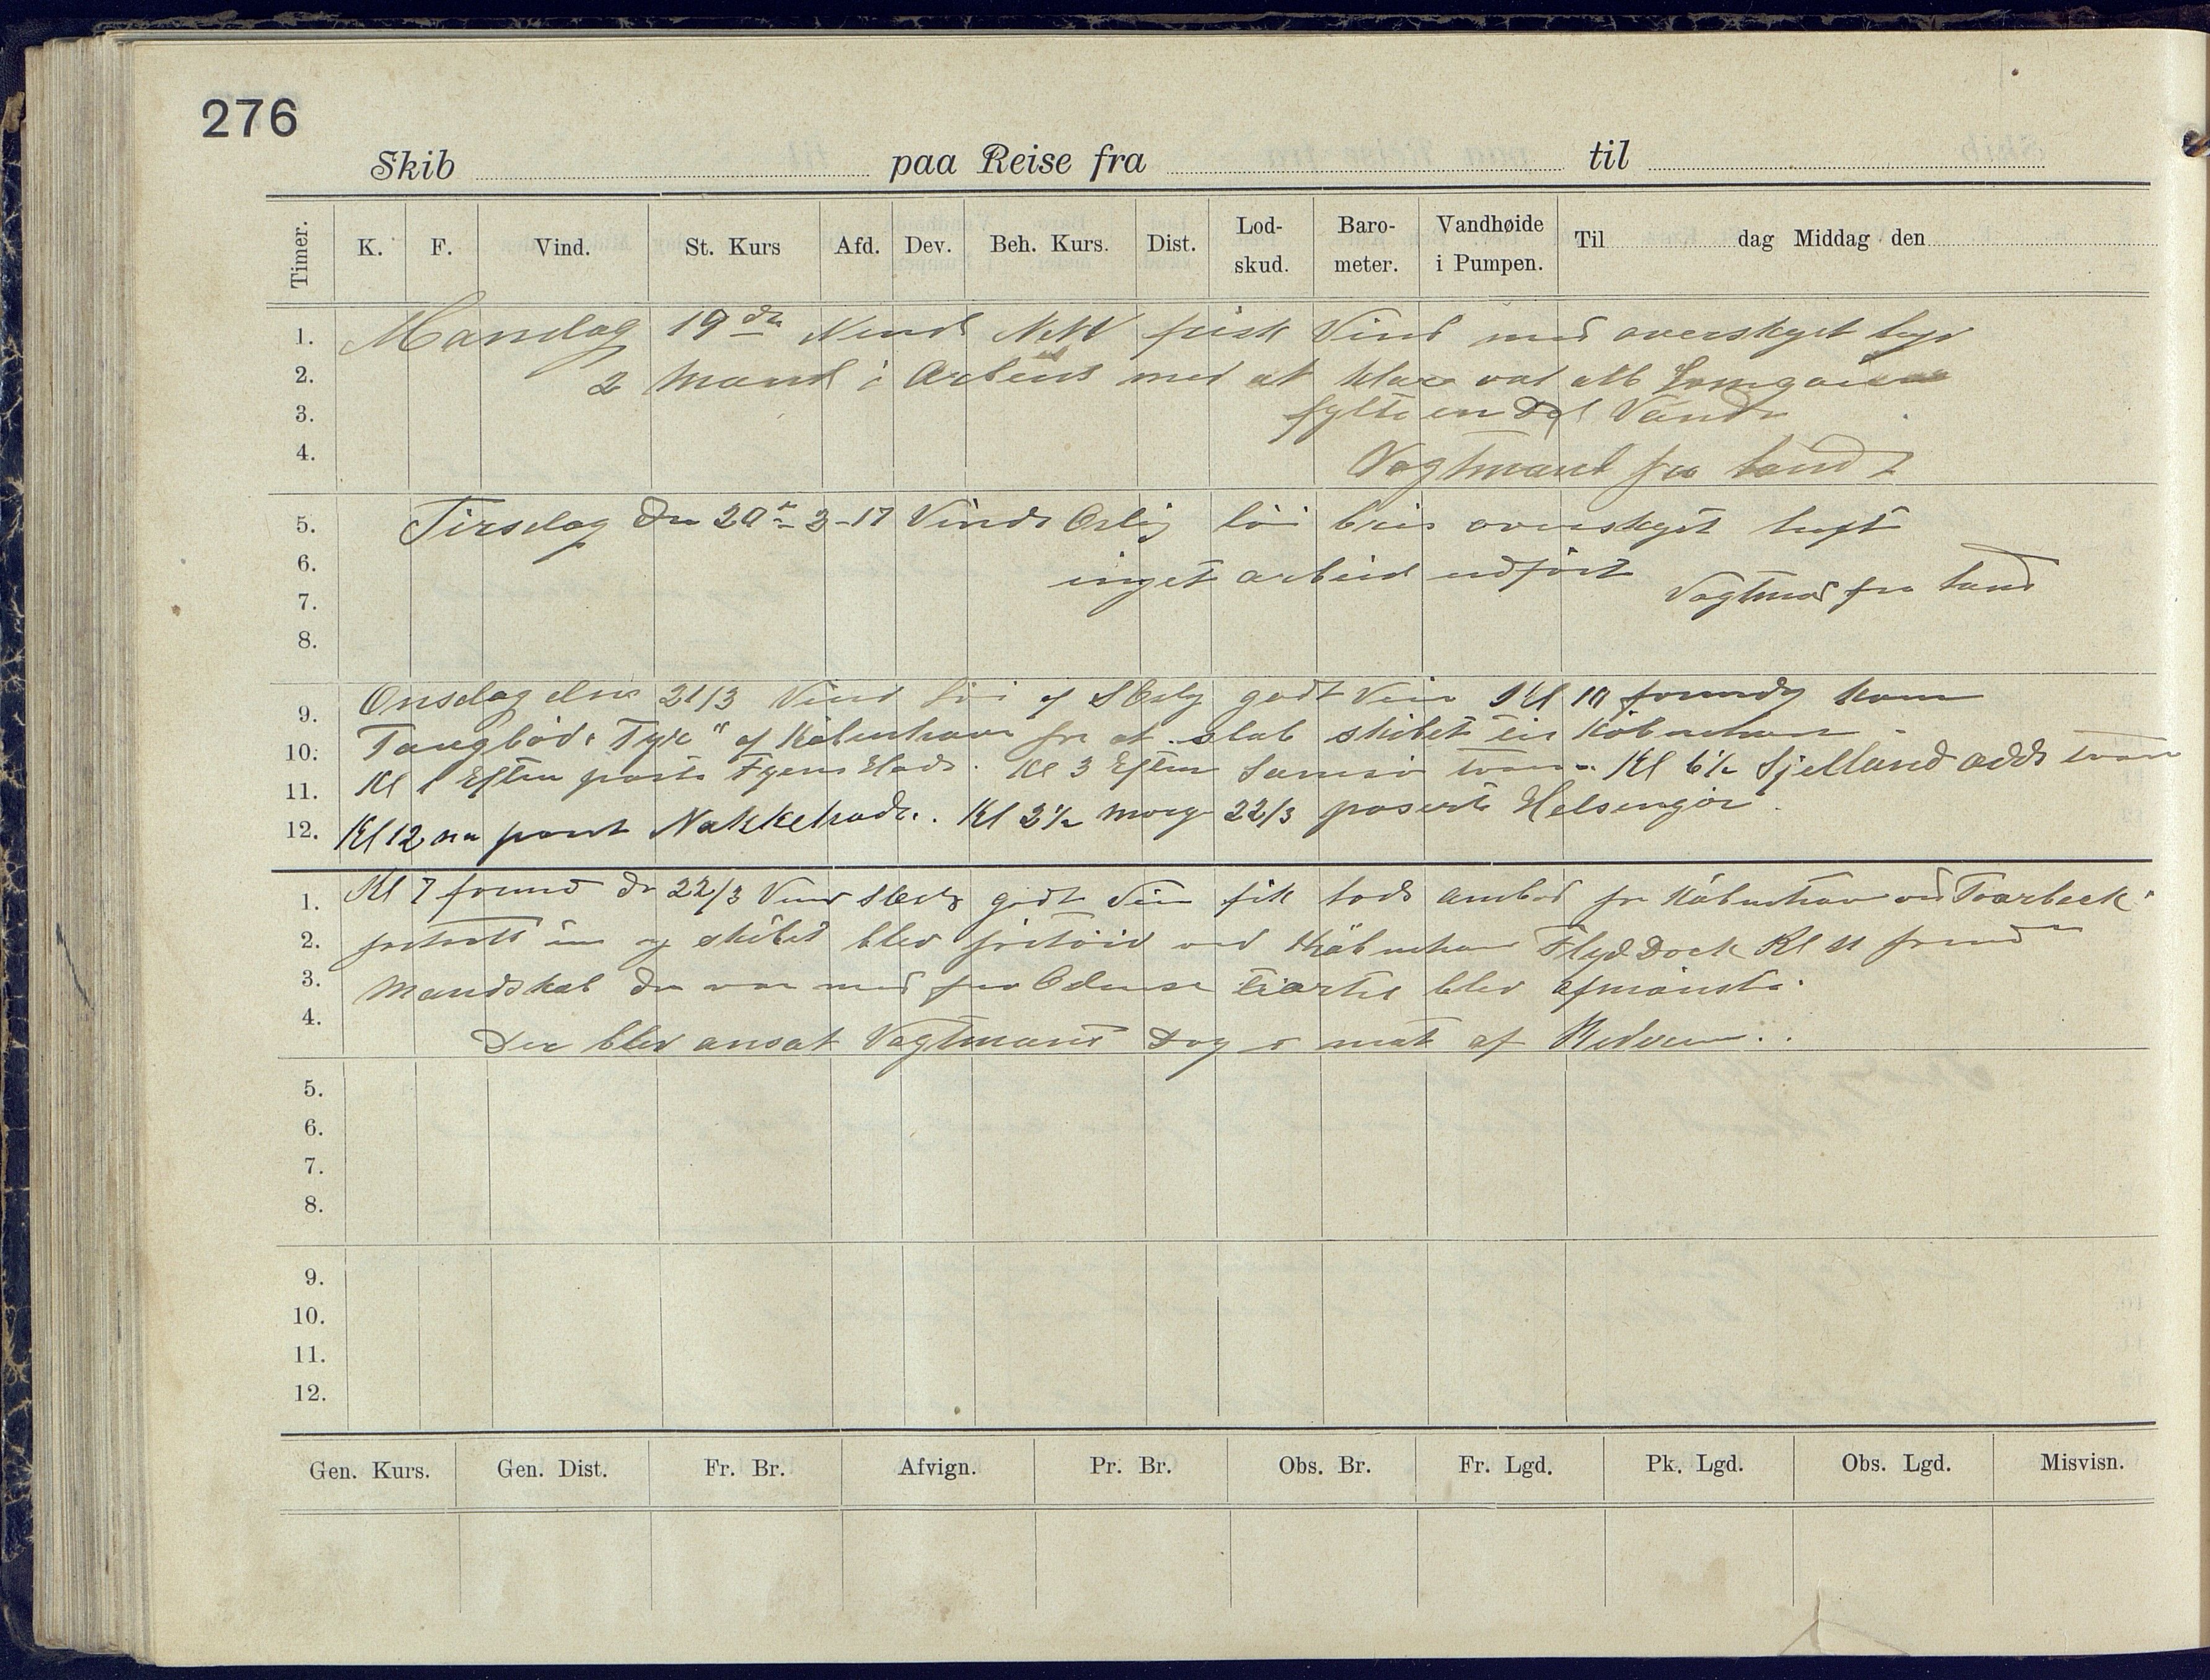 276
Skib paa Reise fra til
Timer. K. F. Vind. St. Kurs Afd. Dev. Beh. Kurs. Dist. Lod-skud. Baro-meter. Vandhøide i Pumpen. Til dag Middag den
1. Mandag 19de Vind NW frisk Vind med overskyet
2. 2 Mand i Arbeid med at klare
3. fylte en Del Vand
4. Vagtmand fra land
5. Tirsdag den 20de 3-17 Vind Ostlig löi bris overskyet luft
6. inget arbeid udfört
7. Vagtmd fra land
8.
9. Onsdag den 21/3 Vind löi af SOstlg godt Veir Kl 10 formdg kom
10. Taugbåd "Tyr" af Köbenhavn for at slæb skibet til Köbenhavn
11. Kl 1 Eftm Fyens Hoved. Kl 3 Eftm Samsö tværs. Kl 6½ Sjelland odde tværs
12. Kl 12 na Nakkehode. Kl 3½ morg 22/3 paserte Helsengör.
1. Kl 7 formd d 22/3 Vind SOstlg godt Veir fik lods ombord fra Köbenhavn ved Taarbæk
2. ind og skibet blev fortöid ved Köbenhavn FlydDock Kl 11 formd
3. Mandskab der var med fra Odense blev afmönstr.
4. Der blev ansat Vagtmand Dag o nat af Rederen..
5.
6.
7.
8.
9.
10.
11.
12.
Gen. Kurs. Gen. Dist. Fr. Br. Afvign. Pr. Br. Obs. Br. Fr. Lgd. Pk. Lgd. Obs. Lgd. Misvisn.